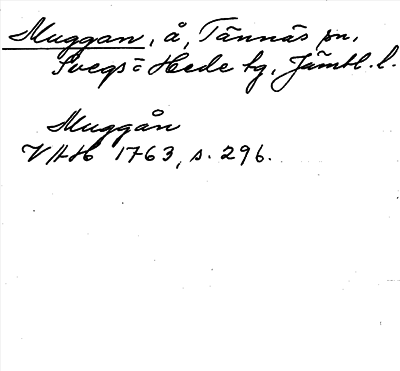 Muggan, å, Tännäs sn,
Svegs = Hede tg, Jämtl. l.
Muggån
VAH 1763, s. 296.